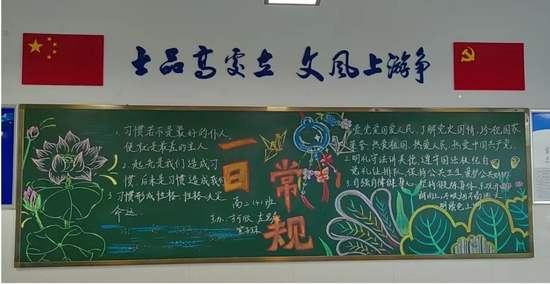 士品高雯立 文风上游争
1、习惯若不是最好的仆人,
便就是最差的主人
2、起先是我们造成习
惯,后来是习惯造成我们
3、习惯形成性格,性格决定
命运。
一日常规
高二(4)班
主办:
1、爱党爱国爱人民,了解党史国情,珍视国家
荣誉,热爱祖国,热爱人民,热爱中国共产党。
2、明礼守法讲美德,遵守国法校纪,自
觉礼让排队,保持公共卫生,爱护公共财物
3、自强自律健身心